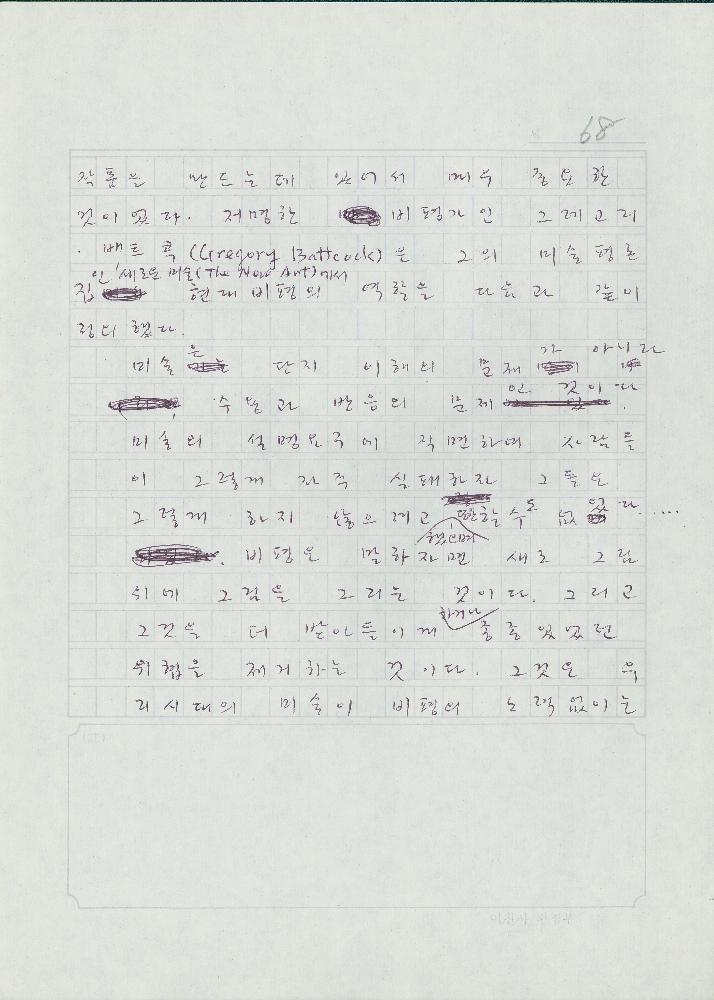 68
작품을 만드는데 있어서 매우 중요한
것이 었다. 저명한 비평가인 그레고리
· 배트콕 (Gregory Battcock)은 그의 미술평론
인 「새로운 미술(The New Art)에서
집 현대비평의 역할을 다음과 같이
정의 했다.
미술은 단지 이해의 문제가 아니라
수용과 반응의 문제인 것이다.
미술의 설명요구에 직면하여 사람들
이 그렇게 자주 실패하자 그들은
그렇게 하지 않으려고 했으며 할 수도 없었다. ....
비평은 말하자면 새로 그림
위에 그림을 그리는 것이다. 그리고
그것을 더 받아들이게 하거나 종종 있었던
위협을 제거하는 것이다. 그것은 우
리시대의 미술이 비평의 노력없이는